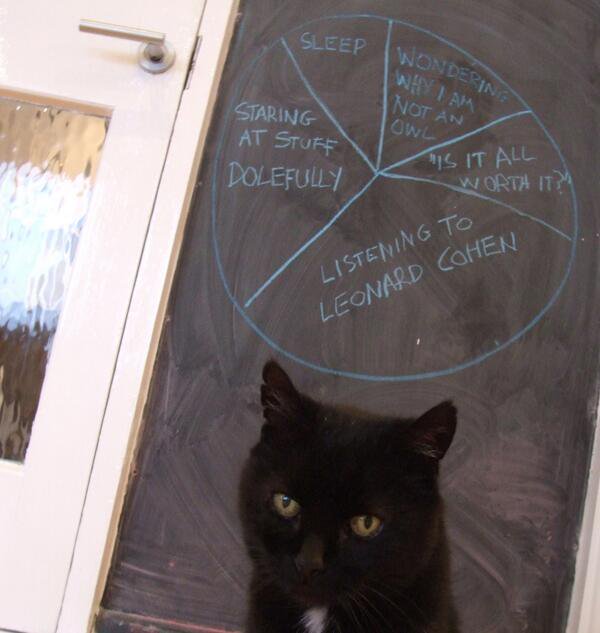 SLEEP
WONDERING
WHY I AM
NOT AN
OWL
STARING
AT STUFF
DOLEFULLY
"IS IT ALL
WORTH IT?"
LISTENING TO
LEONARD COHEN